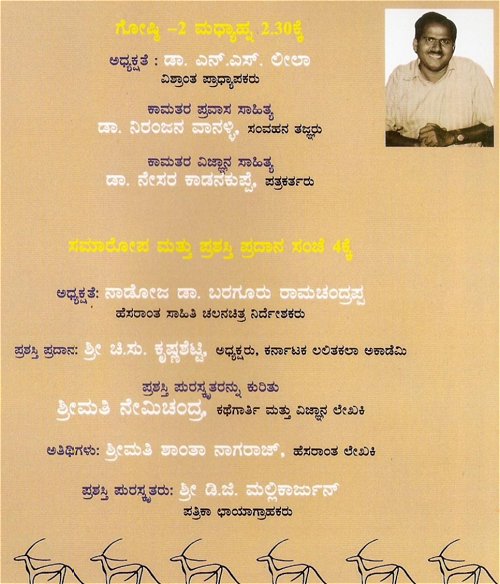 ಗೋಷ್ಠಿ -2 ಮಧ್ಯಾಹ್ನ 2.30ಕ್ಕೆ
ಅಧ್ಯಕ್ಷತೆ : ಡಾ. ಎನ್.ಎಸ್. ಲೀಲಾ
ವಿಶ್ರಾಂತ ಪ್ರಾಧ್ಯಾಪಕರು
ಕಾಮತರ ಪ್ರವಾಸ ಸಾಹಿತ್ಯ
ಡಾ. ನಿರಂಜನ ವಾನಳ್ಳಿ, ಸಂವಹನ ತಜ್ಞರು
ಕಾಮತರ ವಿಜ್ಞಾನ ಸಾಹಿತ್ಯ
ಡಾ. ನೇಸರ ಕಾಡನಕುಪ್ಪೆ, ಪತ್ರಕರ್ತರು
ಸಮಾರೋಪ ಮತ್ತು ಪ್ರಶಸ್ತಿ ಪ್ರದಾನ ಸಂಜೆ 4ಕ್ಕೆ
ಅಧ್ಯಕ್ಷತೆ: ನಾಡೋಜ ಡಾ. ಬರಗೂರು ರಾಮಚಂದ್ರಪ್ಪ
ಹೆಸರಾಂತ ಸಾಹಿತಿ ಚಲನಚಿತ್ರ ನಿರ್ದೇಶಕರು
ಪ್ರಶಸ್ತಿ ಪ್ರದಾನ: ಶ್ರೀ ಚಿ.ಸು. ಕೃಷ್ಣಶೆಟ್ಟಿ, ಅಧ್ಯಕ್ಷರು, ಕರ್ನಾಟಕ ಲಲಿತಕಲಾ ಅಕಾಡೆಮಿ
ಪ್ರಶಸ್ತಿ ಪುರಸ್ಕೃತರನ್ನು ಕುರಿತು
ಶ್ರೀಮತಿ ನೇಮಿಚಂದ್ರ, ಕಥೆಗಾರ್ತಿ ಮತ್ತು ವಿಜ್ಞಾನ ಲೇಖಕಿ
ಅತಿಥಿಗಳು: ಶ್ರೀಮತಿ ಶಾಂತಾ ನಾಗರಾಜ್, ಹೆಸರಾಂತ ಲೇಖಕಿ
ಪ್ರಶಸ್ತಿ ಪುರಸ್ಕೃತರು: ಶ್ರೀ ಡಿ.ಜಿ. ಮಲ್ಲಿಕಾರ್ಜುನ್
ಪತ್ರಿಕಾ ಛಾಯಾಗ್ರಾಹಕರು